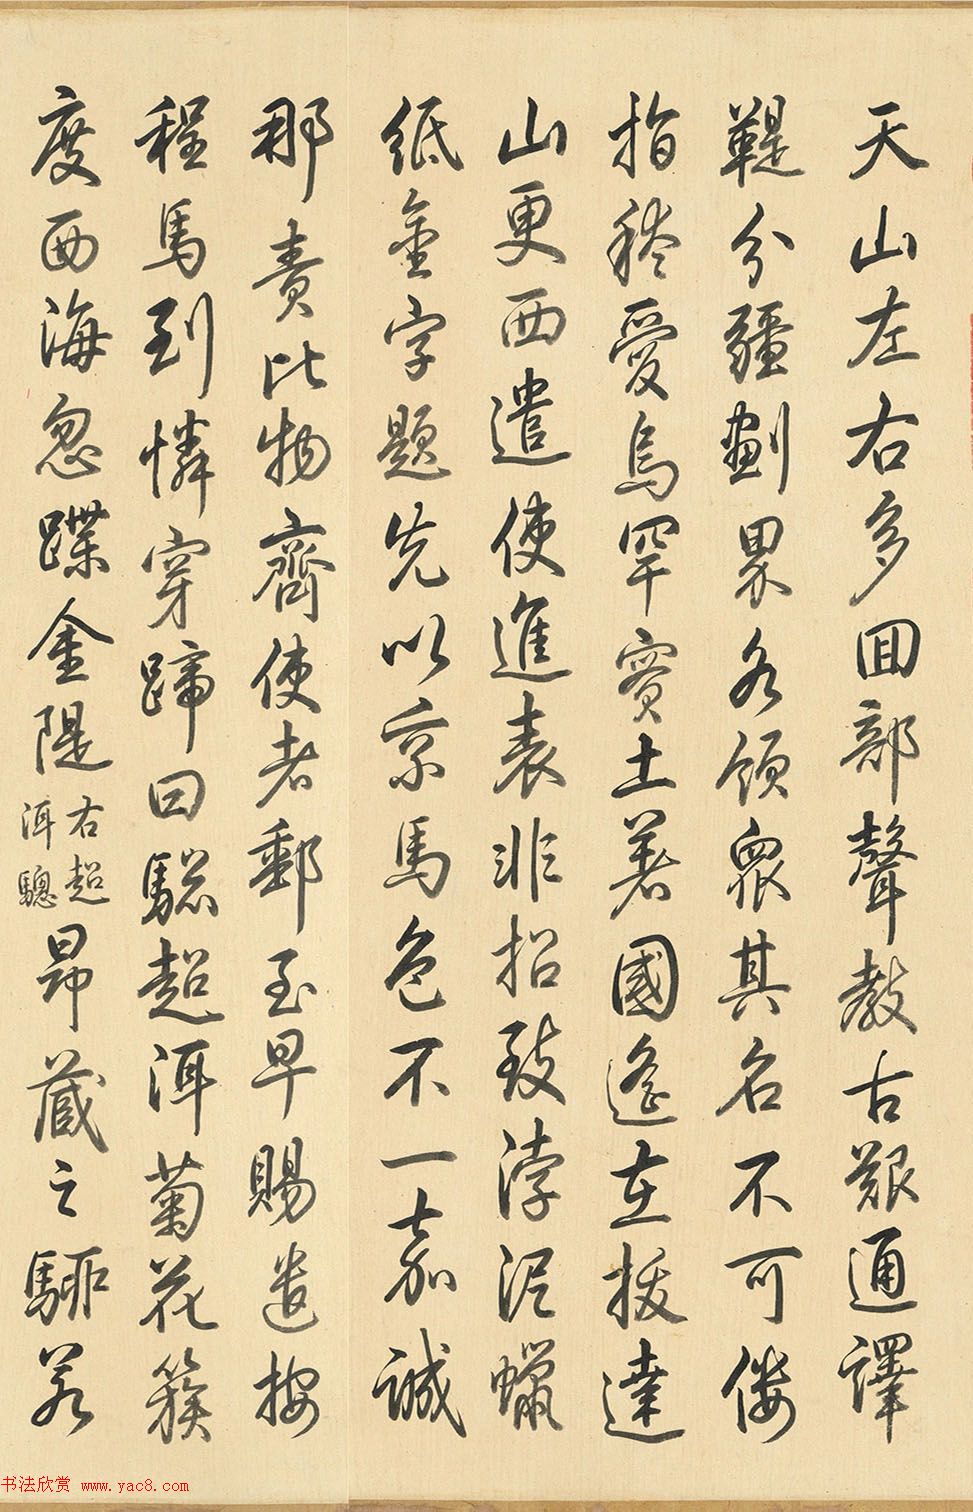 天山左右多囬部聲教古艱通譯
鞮分疆劃界各領眾其名不可僂
指稽愛烏罕實土著國遙在拔達
山更西遣使進表非招致浡泥蠟
紙金字題先以京馬色不一嘉誠
那責比物齊使者郵至早賜遣按
程馬到憐穿蹄曰驄超洱菊花簇
度西海忽蹀金隄右超洱驄昂藏之駵若
书法欣赏 www.yac8.com